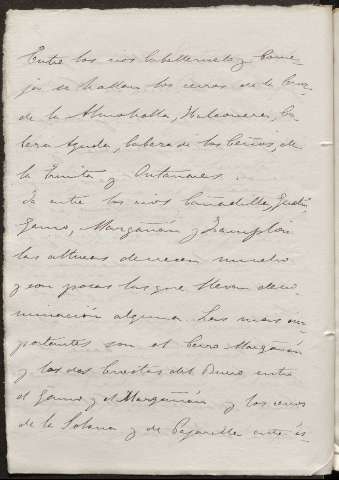 Entre los rios Caballeruelo y Corne-
ja se hallan los cerros de la Cruz
de la Almohalla, Halconera, Ca-
beza Aguda, Cabeza de los Ceños, de
la Ermita y Ontanares.
Ya entre los rios Cañadilla,
Gamo, Margañán y Trampión
las alturas decrecen mucho
y son pocas las que llevan deno-
minación alguna. Las mas im-
portantes son el Cerro Margañan
y las dos Crestas del Burro entre
el Gamo y el Margañán y los cerros
de la Solana y de Pajarilla entre és-